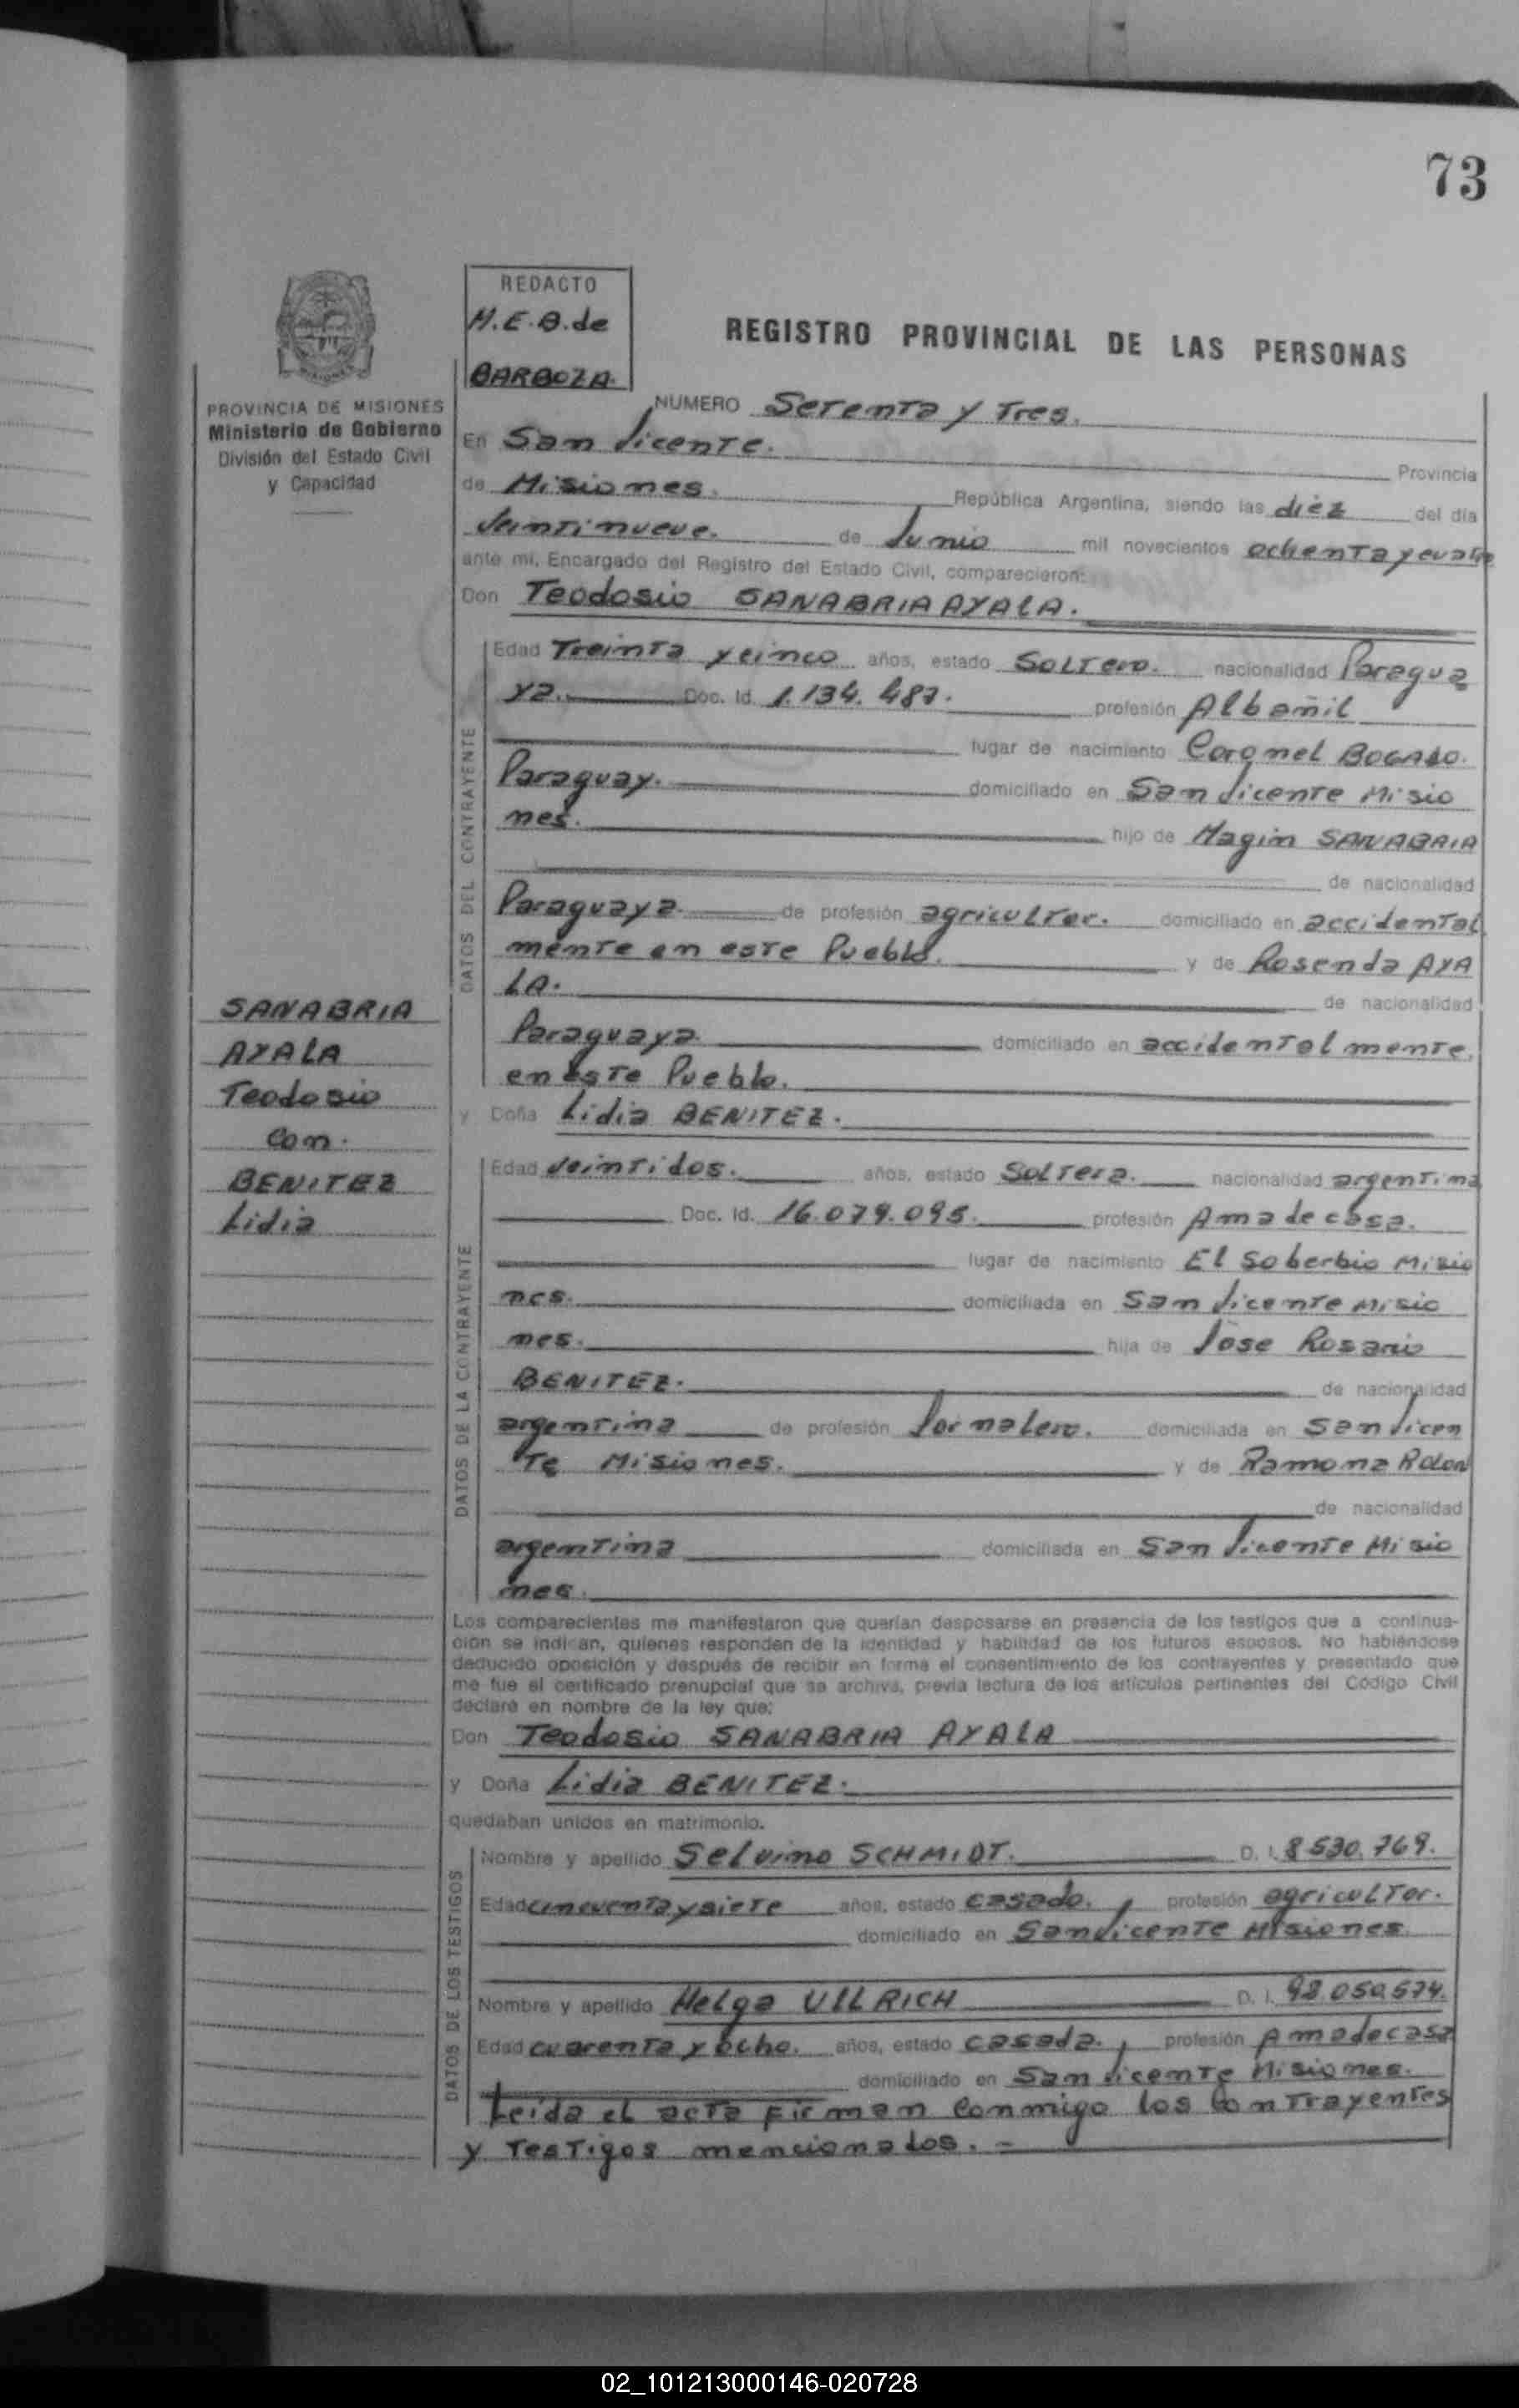 73
REDACTO
M.E.B. de
BARBOZA.
REGISTRO PROVINCIAL DE LAS PERSONAS
PROVINCIA DE MISIONES
Ministerio de Gobierno
División del Estado Civil
y Capacidad
NUMERO Setenta y Tres.
En San Vicente. Provincia
de Misiones. República Argentina, siendo las diéz del día
Veintinueve. de Junio mil novecientos ochenta y cuatro
ante mi, Encargado del Registro del Estado Civil, comparecieron:
Don Teodosio SANABRIA AYALA.
DATOS DEL CONTRAYENTE
Edad Treinta y cinco años, estado Soltero. nacionalidad Paragua
ya. Doc. Id. 1.134.487. profesión Albañil
lugar de nacimiento Coronel BOGADO.
Paraguay. domiciliado en San Vicente Misio
nes. hijo de Magin SANABRIA
de nacionalidad
Paraguaya de profesión agricultor. domiciliado en accidental
mente en este Pueblo. y de Rosenda AYA
LA. de nacionalidad
Paraguaya domiciliado en accidentalmente.
en este Pueblo.
y Doña Lidia BENITEZ.
SANABRIA
AYALA
Teodosio
con.
BENITEZ
Lidia
DATOS DE LA CONTRAYENTE
Edad Veintidos. años, estado Soltera. nacionalidad argentina
Doc. Id. 16.079.095. profesión Ama de casa.
lugar de nacimiento El Soberbio Misio
nes. domiciliada en San Vicente Misio
nes. hija de Jose Rosario
BENITEZ. de nacionalidad
argentina de profesión Jornalero. domiciliada en San Vicen
te Misiones. y de Ramona Rolon
de nacionalidad
argentina domiciliada en San Vicente Misio
nes.
Los comparecientes me manifestaron que querían desposarse en presencia de los testigos que a continua-
ción se indican, quienes responden de la identidad y habilidad de los futuros esposos. No habiéndose
deducido oposición y después de recibir en forma el consentimiento de los contrayentes y presentado que
me fue el certificado prenupcial que se archiva, previa lectura de los artículos pertinentes del Código Civil
declaré en nombre de la ley que:
Don Teodosio SANABRIA AYALA
y Doña Lidia BENITEZ.
quedaban unidos en matrimonio.
DATOS DE LOS TESTIGOS
Nombre y apellido Selvino SCHMIDT. D. I. 8530.769.
Edad cincuenta y siete años, estado casado. profesión agricultor.
domiciliado en San Vicente Misiones.
Nombre y apellido Helga ULLRICH D. I. 92.050.574.
Edad cuarenta y ocho. años, estado casada. profesión Ama de casa
domiciliado en San Vicente Misiones.
Leida el acta firman conmigo los contrayentes
y testigos mencionados. -
02_101213000146-020728